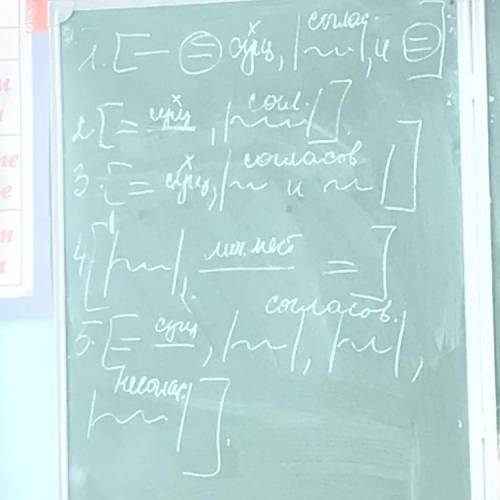 1. [— = сущ, |~~| соглас., и =]
2. [= сущ, |~~| согл.].
3. [= сущ, |~ и ~| согласов]
4. [|~~|, лич. мест =]
5. [= сущ, |~~|, |~~|, согласов.
|~~|].